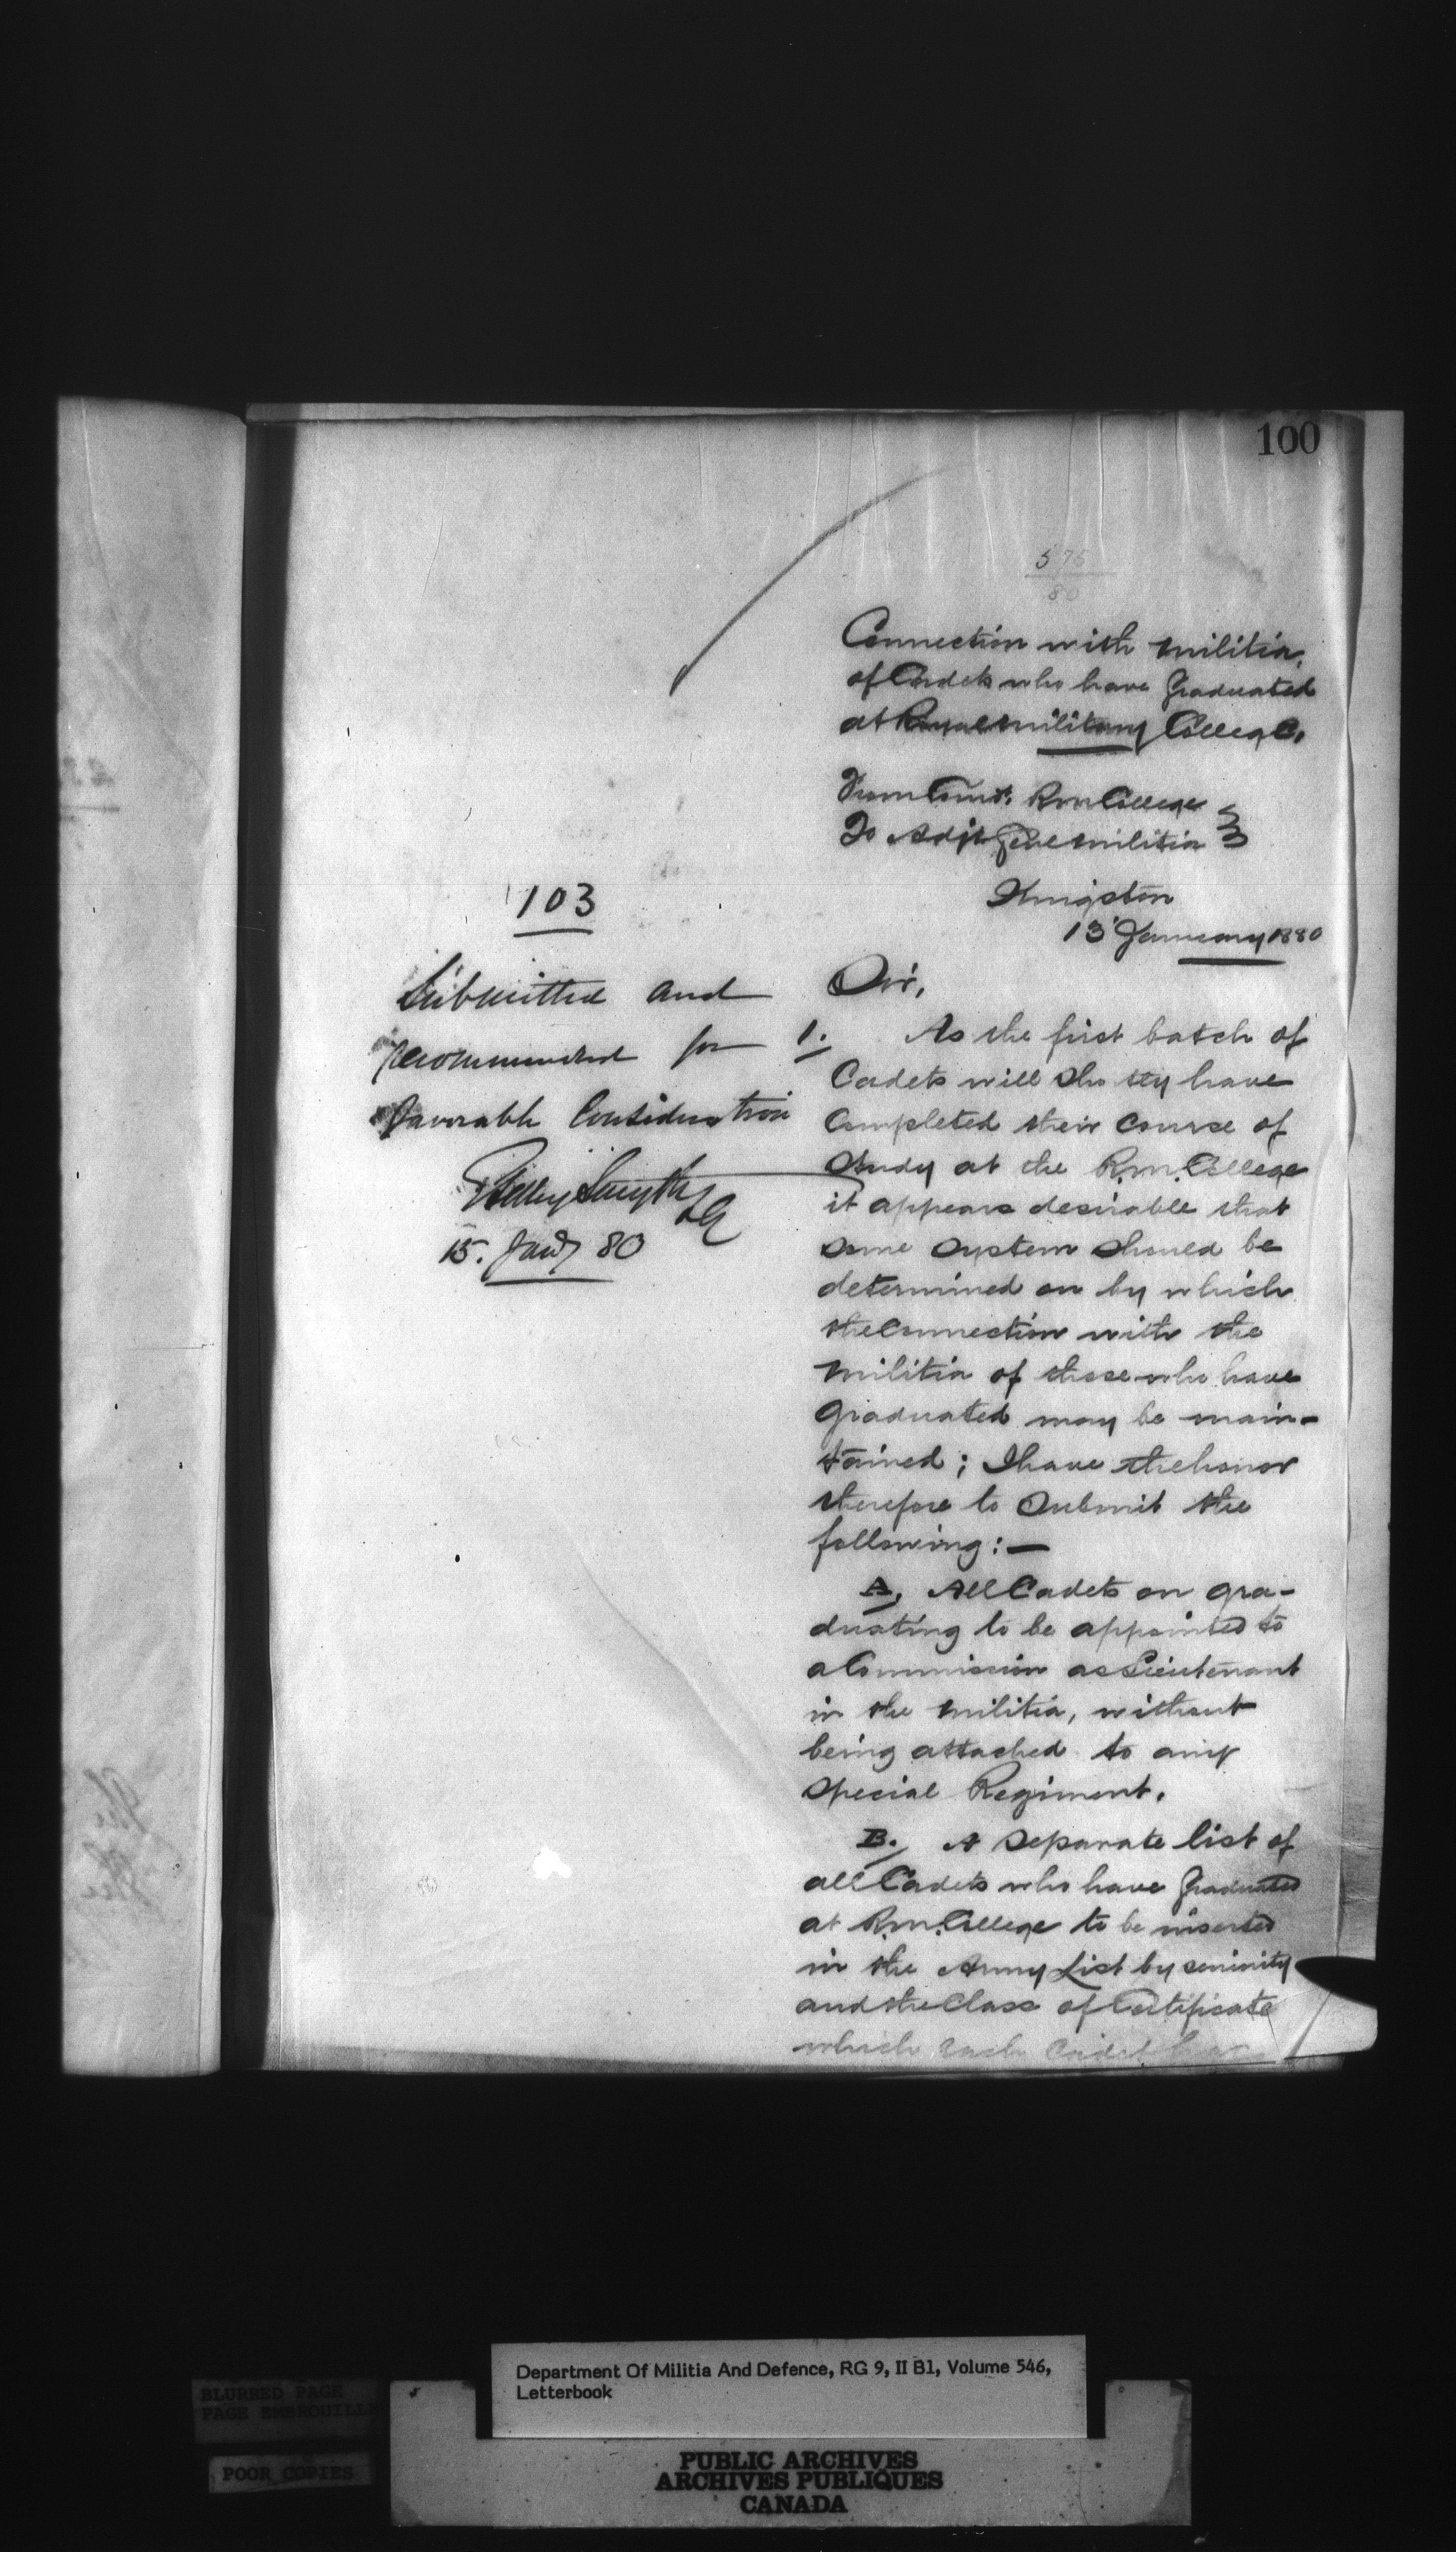 100
575
80
Connection with Militia,
of Cadets who have Graduated
at Royal Military College.
From Comdt. R.M. College
To Adjt Genl Militia
Kingston
13 January 1880
103
Submitted and
recommended for
favorable Consideration
Selby Smyth LG
15. Jany 80
Sir,
1. As the first batch of
Cadets will shortly have
completed their course of
Study at the R.M. College
it appears desirable that
some system should be
determined on by which
the connection with the
Militia of those who have
Graduated may be main-
tained; I have the honor
therefore to submit the
following:—
A. All Cadets on gra-
duating to be appointed to
a Commission as Lieutenant
in the Militia, without
being attached to any
special Regiment.
B. A separate list of
all Cadets who have Graduated
at R.M. College to be inserted
in the Army List by seniority
and the Class of Certificate
which each Cadet has
Department Of Militia And Defence, RG 9, II B1, Volume 546,
Letterbook
BLURRED PAGE
PAGE EMBROUILLE
POOR COPIES
PUBLIC ARCHIVES
ARCHIVES PUBLIQUES
CANADA